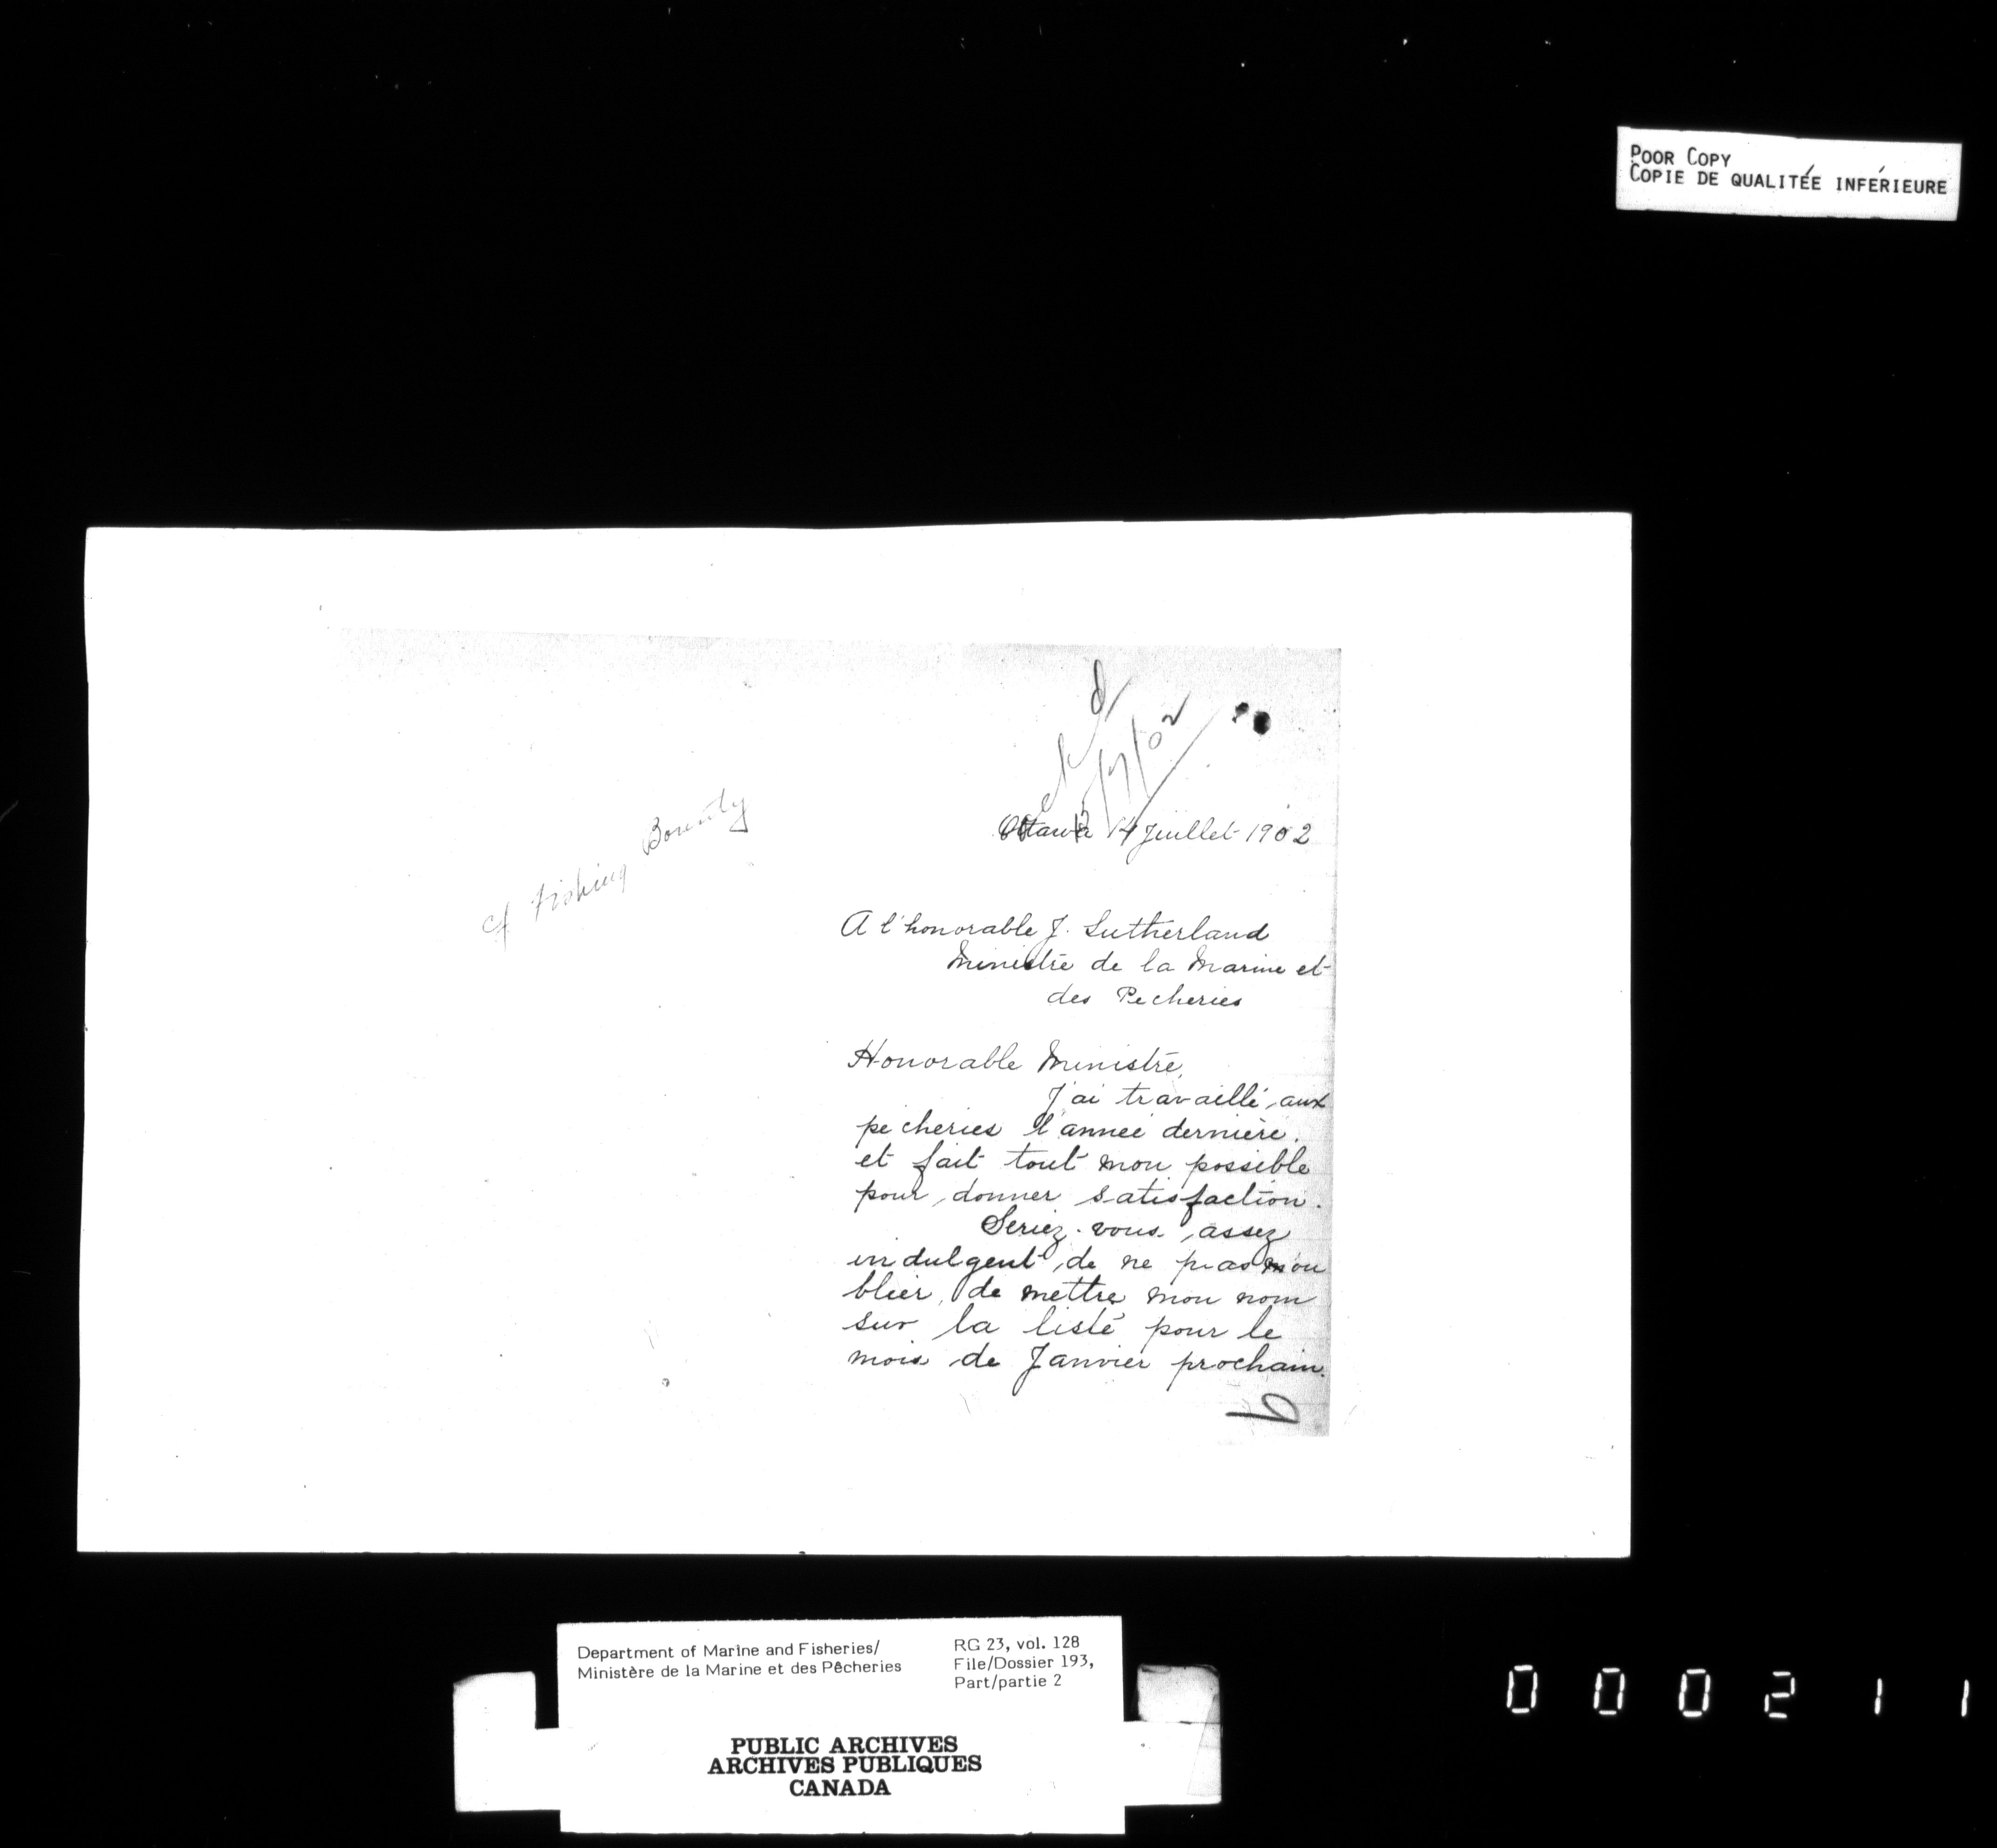 POOR COPY
COPIE DE QUALITÉE INFÉRIEURE
ckd
/7/02
cf Fishing Bounty
Ottawa 14 Juillet 1902
A l'honorable J. Sutherland
Ministre de la Marine et
des Pecheries
Honorable Ministre,
J'ai travaillé aux
pecheries l'année dernière.
et fait tout mon possible
pour donner satisfaction.
Seriez-vous assez
indulgent de ne pas m'ou
blier, de mettre mon nom
sur la liste pour le
mois de Janvier prochain.
6
Department of Marine and Fisheries/
Ministère de la Marine et des Pêcheries
RG 23, vol. 128
File/Dossier 193,
Part/partie 2
PUBLIC ARCHIVES
ARCHIVES PUBLIQUES
CANADA
000211